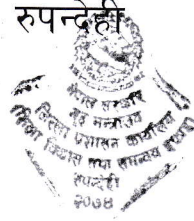 रुपन्देही
नेपाल सरकार
गृह मन्त्रालय
जिल्ला प्रशासन कार्यालय
रुपन्देही
२०७४